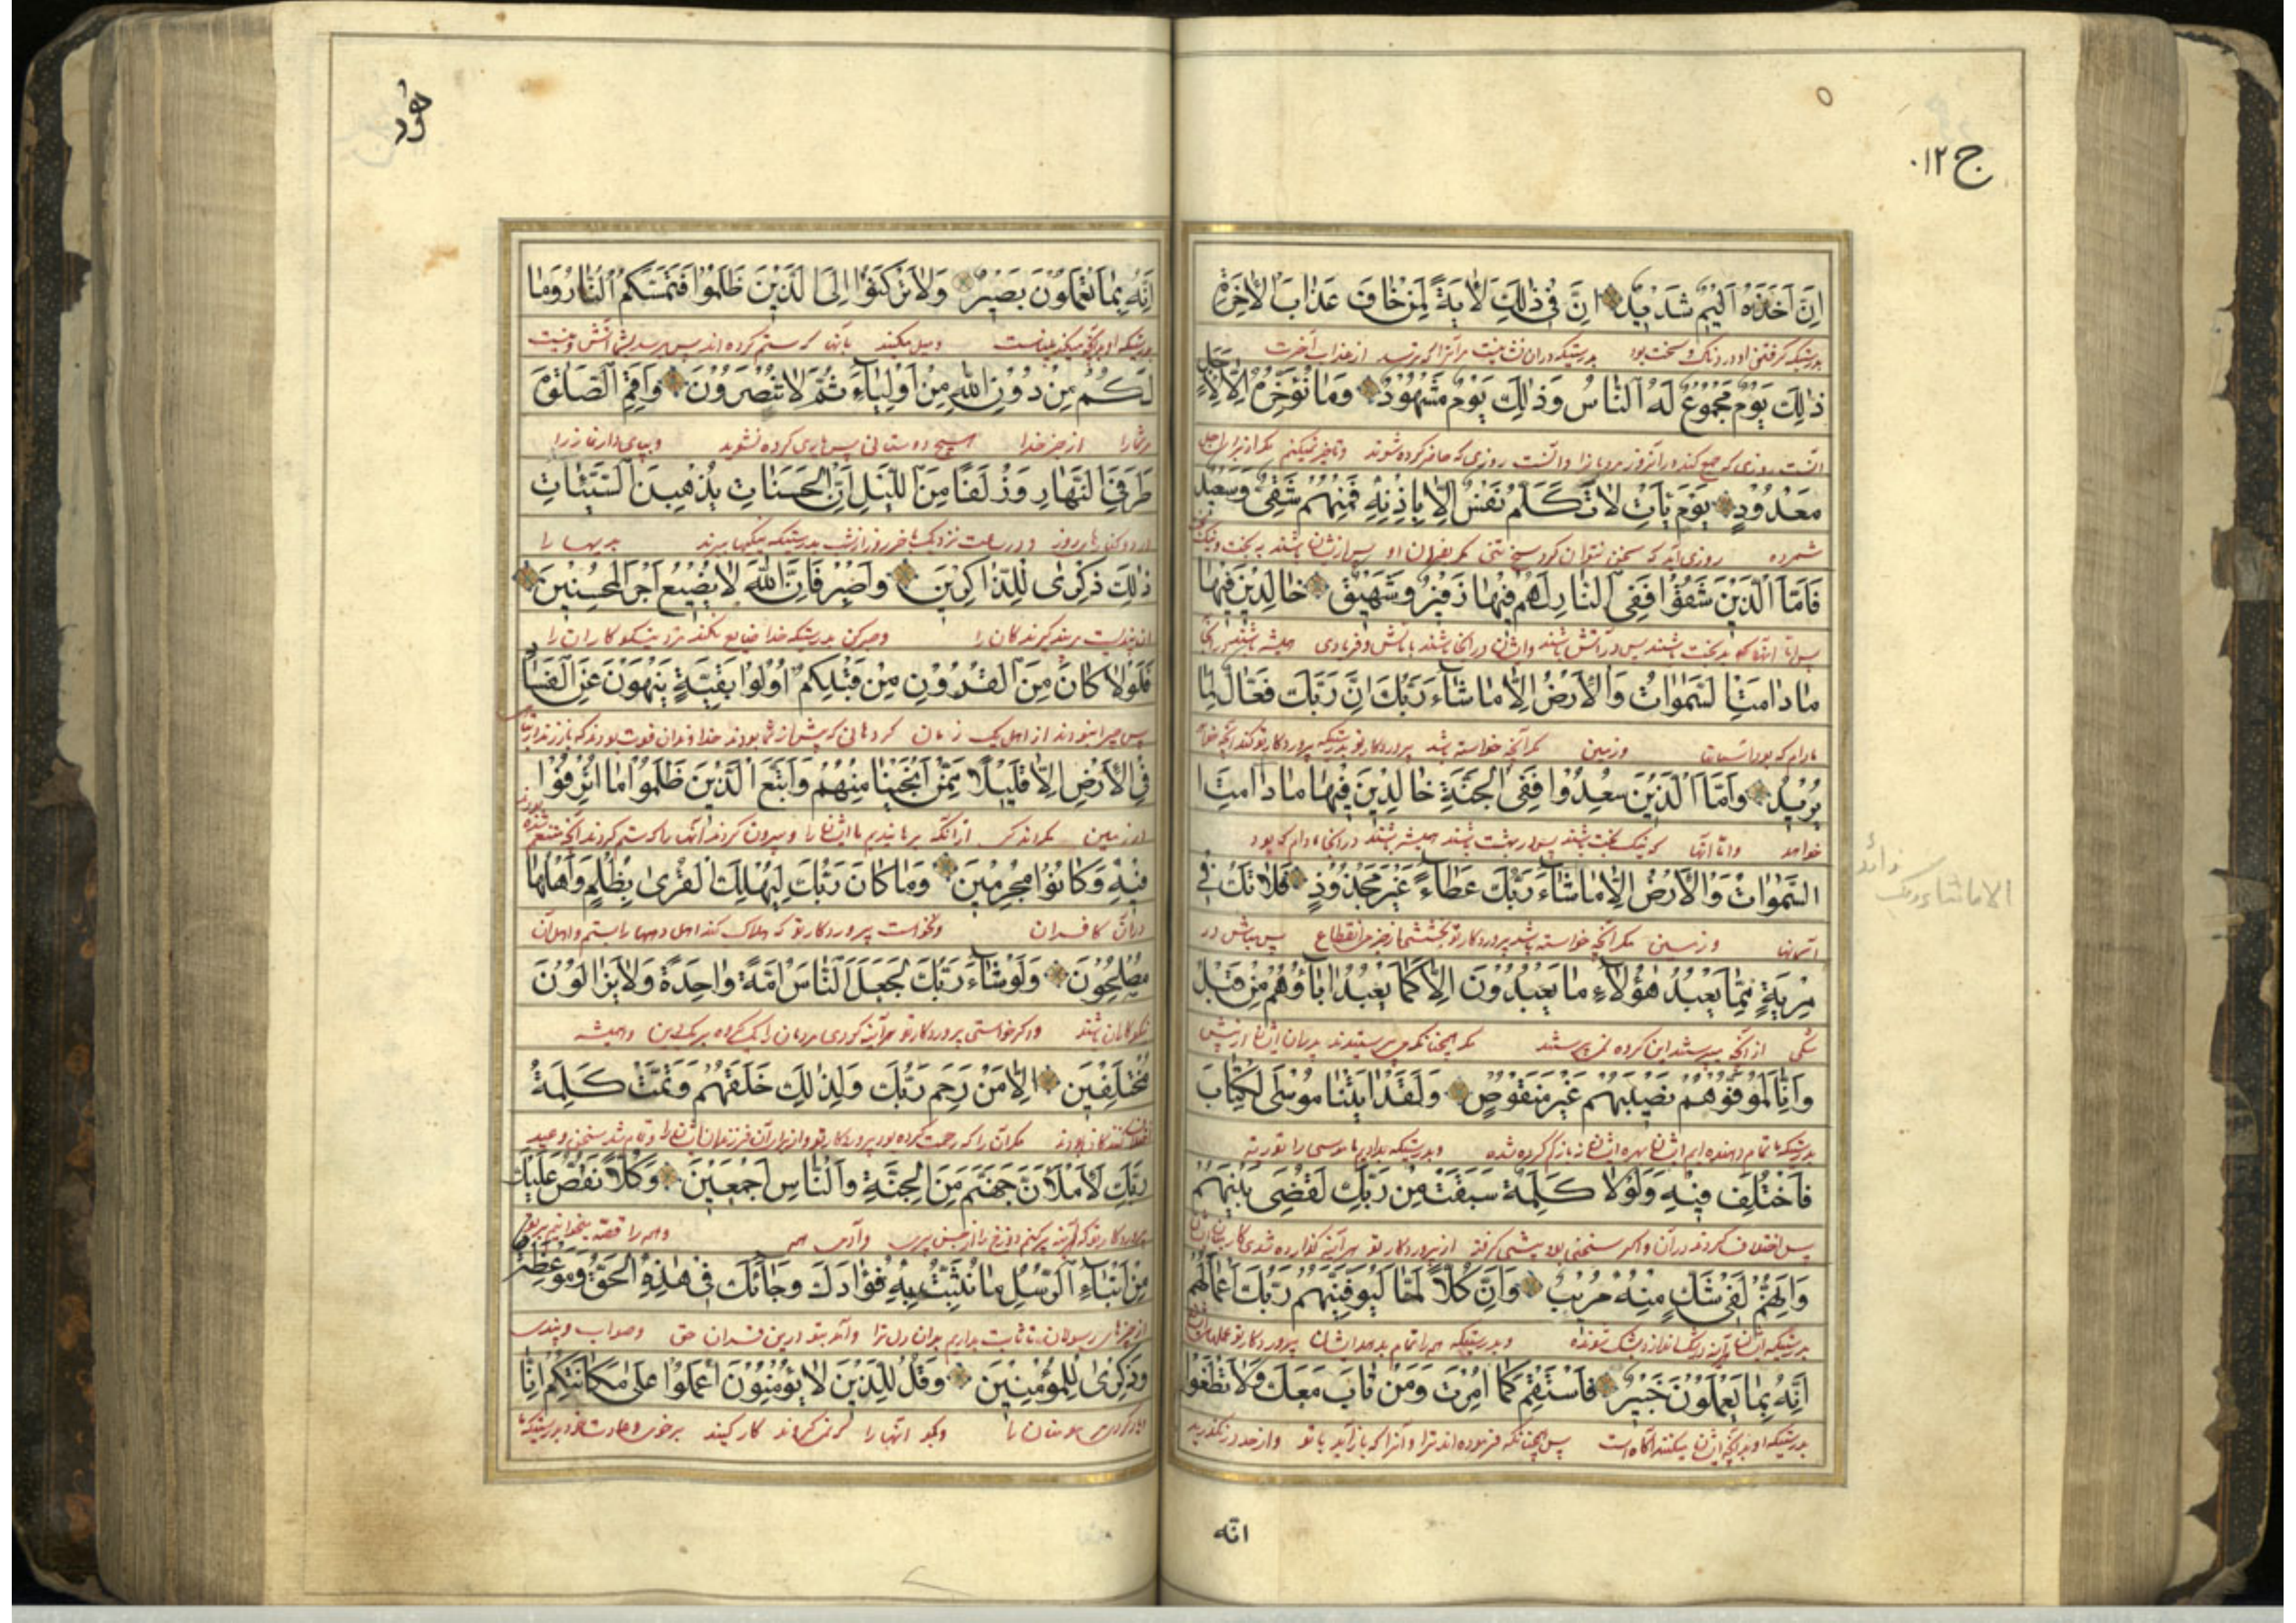 ج ١٢
هُود
اِنَّ اَخْذَهُ اَلِيمٌ شَدِيدٌ اِنَّ فِى ذٰلِكَ لَاٰيَةً لِمَنْ خَافَ عَذَابَ الْاٰخِرَةِ
بدرستیکه گرفتن او دردناک و سخت بود بدرستیکه در آن نشانیست مر آنرا که ترسد از عذاب آخرت
ذٰلِكَ يَوْمٌ مَجْمُوعٌ لَهُ النَّاسُ وَذٰلِكَ يَوْمٌ مَشْهُودٌ وَمَا نُؤَخِّرُهُ اِلَّا لِاَجَلٍ
آنست روزی که جمع کنند در آنروز مردمانرا و آنست روزی که حاضر کرده شوند و تاخیر نمیکنم مگر از برای اجل
مَعْدُودٍ يَوْمَ يَاْتِ لَا تَكَلَّمُ نَفْسٌ اِلَّا بِاِذْنِهِ فَمِنْهُمْ شَقِىٌّ وَسَعِيدٌ
شمرده روزی آید که سخن نتوان کرد هیچ تنی مگر بفرمان او پس از ایشان باشند بدبخت و نیکبخت
فَاَمَّا الَّذِينَ شَقُوا فَفِى النَّارِ لَهُمْ فِيهَا زَفِيرٌ وَشَهِيقٌ خَالِدِينَ فِيهَا
پس اما آنها که بدبخت باشند پس در آتش باشند و ایشان در آنجا باشند با نالش و فریادی همیشه باشند در آنجا
مَا دَامَتِ السَّمٰوَاتُ وَالْاَرْضُ اِلَّا مَا شَاءَ رَبُّكَ اِنَّ رَبَّكَ فَعَّالٌ لِمَا
مادام که بود آسمانها و زمین مگر آنچه خواسته باشد پروردگار تو بدرستیکه پروردگار تو کند آنچه خواهد
يُرِيدُ وَاَمَّا الَّذِينَ سُعِدُوا فَفِى الْجَنَّةِ خَالِدِينَ فِيهَا مَا دَامَتِ
خواهد و اما آنها که نیکبخت باشند پس در بهشت باشند همیشه باشند در آنجا مادام که بود
السَّمٰوَاتُ وَالْاَرْضُ اِلَّا مَا شَاءَ رَبُّكَ عَطَاءً غَيْرَ مَجْذُوذٍ فَلَا تَكُ فِى
الا ماشاء ربک زائد
آسمانها و زمین مگر آنچه خواسته باشد پروردگار تو بخششی از جز انقطاع پس مباش در
مِرْيَةٍ مِمَّا يَعْبُدُ هٰؤُلَاءِ مَا يَعْبُدُونَ اِلَّا كَمَا يَعْبُدُ اٰبَاؤُهُمْ مِنْ قَبْلُ
شکی از آنچه میپرستند این گروه نمی پرستند مگر همچنانکه می پرستیدند پدران ایشان از پیش
وَاِنَّا لَمُوَفُّوهُمْ نَصِيبَهُمْ غَيْرَ مَنْقُوصٍ وَلَقَدْ اٰتَيْنَا مُوسَى الْكِتَابَ
بدرستیکه ما تمام دهنده ایم ایشان را بهره ایشان نه باز کم کرده شده و بدرستیکه بدادیم ما موسی را توریة
فَاخْتُلِفَ فِيهِ وَلَوْلَا كَلِمَةٌ سَبَقَتْ مِنْ رَبِّكَ لَقُضِىَ بَيْنَهُمْ
پس اختلاف کردند در آن و اگر سخنی بود پیشی گرفته از پروردگار تو هر آینه گذارده شدی کار میان ایشان
وَاِنَّهُمْ لَفِى شَكٍّ مِنْهُ مُرِيبٍ وَاِنَّ كُلًّا لَمَّا لَيُوَفِّيَنَّهُمْ رَبُّكَ اَعْمَالَهُمْ
بدرستیکه ایشان هر آینه در شک اند از و بشک شونده و بدرستیکه همه را تمام بدهد ایشان پروردگار تو عملهای ایشان
اِنَّهُ بِمَا يَعْمَلُونَ خَبِيرٌ فَاسْتَقِمْ كَمَا اُمِرْتَ وَمَنْ تَابَ مَعَكَ وَلَا تَطْغَوْا
بدرستیکه او بدانچه ایشان میکنند آگاه است پس همچنانکه فرموده اند ترا و آنرا که باز آید با تو و از حد در نگذرید
انّه
اِنَّهُ بِمَا تَعْمَلُونَ بَصِيرٌ وَلَا تَرْكَنُوا اِلَى الَّذِينَ ظَلَمُوا فَتَمَسَّكُمُ النَّارُ وَمَا
بدرستیکه او بدانچه میکنید بیناست و میل مکنید بآنان که ستم کرده اند پس برسد بشما آتش و نیست
لَكُمْ مِنْ دُونِ اللّٰهِ مِنْ اَوْلِيَاءَ ثُمَّ لَا تُنْصَرُونَ وَاَقِمِ الصَّلٰوةَ
مر شمارا از جز خدا هیچ دوستانی پس یاری کرده نشوید و بپای دار نماز را
طَرَفَىِ النَّهَارِ وَزُلَفًا مِنَ اللَّيْلِ اِنَّ الْحَسَنَاتِ يُذْهِبْنَ السَّيِّئَاتِ
در دو کنارهاء روز و در ساعت نزدیک باخر روز از شب بدرستیکه نیکیها ببرند بدیها را
ذٰلِكَ ذِكْرٰى لِلذَّاكِرِينَ وَاصْبِرْ فَاِنَّ اللّٰهَ لَا يُضِيعُ اَجْرَ الْمُحْسِنِينَ
آن پندیست پند گیرندگان را و صبر کن بدرستیکه خدا ضایع نکند مزد نیکوکاران را
فَلَوْلَا كَانَ مِنَ الْقُرُونِ مِنْ قَبْلِكُمْ اُولُوا بَقِيَّةٍ يَنْهَوْنَ عَنِ الْفَسَادِ
پس چرا نبودند از اهل یک زمان گروهانی که پیش از شما بودند خداوندان قوت بودند که باز زدند از تباهی
فِى الْاَرْضِ اِلَّا قَلِيلًا مِمَّنْ اَنْجَيْنَا مِنْهُمْ وَاتَّبَعَ الَّذِينَ ظَلَمُوا مَا اُتْرِفُوا
در زمین مگر اندکی از آنکه برهانیدیم ما ایشان را و پیروی کردند آنها را که ستم کردند آنچه متنعم شده بودند
فِيهِ وَكَانُوا مُجْرِمِينَ وَمَا كَانَ رَبُّكَ لِيُهْلِكَ الْقُرٰى بِظُلْمٍ وَاَهْلُهَا
در آن کافران و نخواست پروردگار تو که هلاک کند اهل دهها را بستم و اهل آن
مُصْلِحُونَ وَلَوْ شَاءَ رَبُّكَ لَجَعَلَ النَّاسَ اُمَّةً وَاحِدَةً وَلَا يَزَالُونَ
نیکوکاران باشند و اگر خواستی پروردگار تو هر آینه کردی مردمان را یک گروه بر یک دین و همیشه
مُخْتَلِفِينَ اِلَّا مَنْ رَحِمَ رَبُّكَ وَلِذٰلِكَ خَلَقَهُمْ وَتَمَّتْ كَلِمَةُ
مگر آن را که رحمت کرده بود پروردگار تو و از برای آن و تمام شد سخن وعید
رَبِّكَ لَاَمْلَاَنَّ جَهَنَّمَ مِنَ الْجِنَّةِ وَالنَّاسِ اَجْمَعِينَ وَكُلًّا نَقُصُّ عَلَيْكَ
پروردگار تو که هر آینه پر کنم دوزخ را از جنس پری و آدمی همه و همه را قصه میخوانیم بر تو
مِنْ اَنْبَاءِ الرُّسُلِ مَا نُثَبِّتُ بِهِ فُؤَادَكَ وَجَاءَكَ فِى هٰذِهِ الْحَقُّ وَمَوْعِظَةٌ
از خبرهای رسولان تا ثابت بداریم بدان دل ترا و آمد بتو درین قران حق و صواب و پندی
وَذِكْرٰى لِلْمُؤْمِنِينَ وَقُلْ لِلَّذِينَ لَا يُؤْمِنُونَ اعْمَلُوا عَلٰى مَكَانَتِكُمْ اِنَّا
و یاد کردی مومنان را و بگو آنها را کار کنید بر خوی و عادت بدرستیکه ما